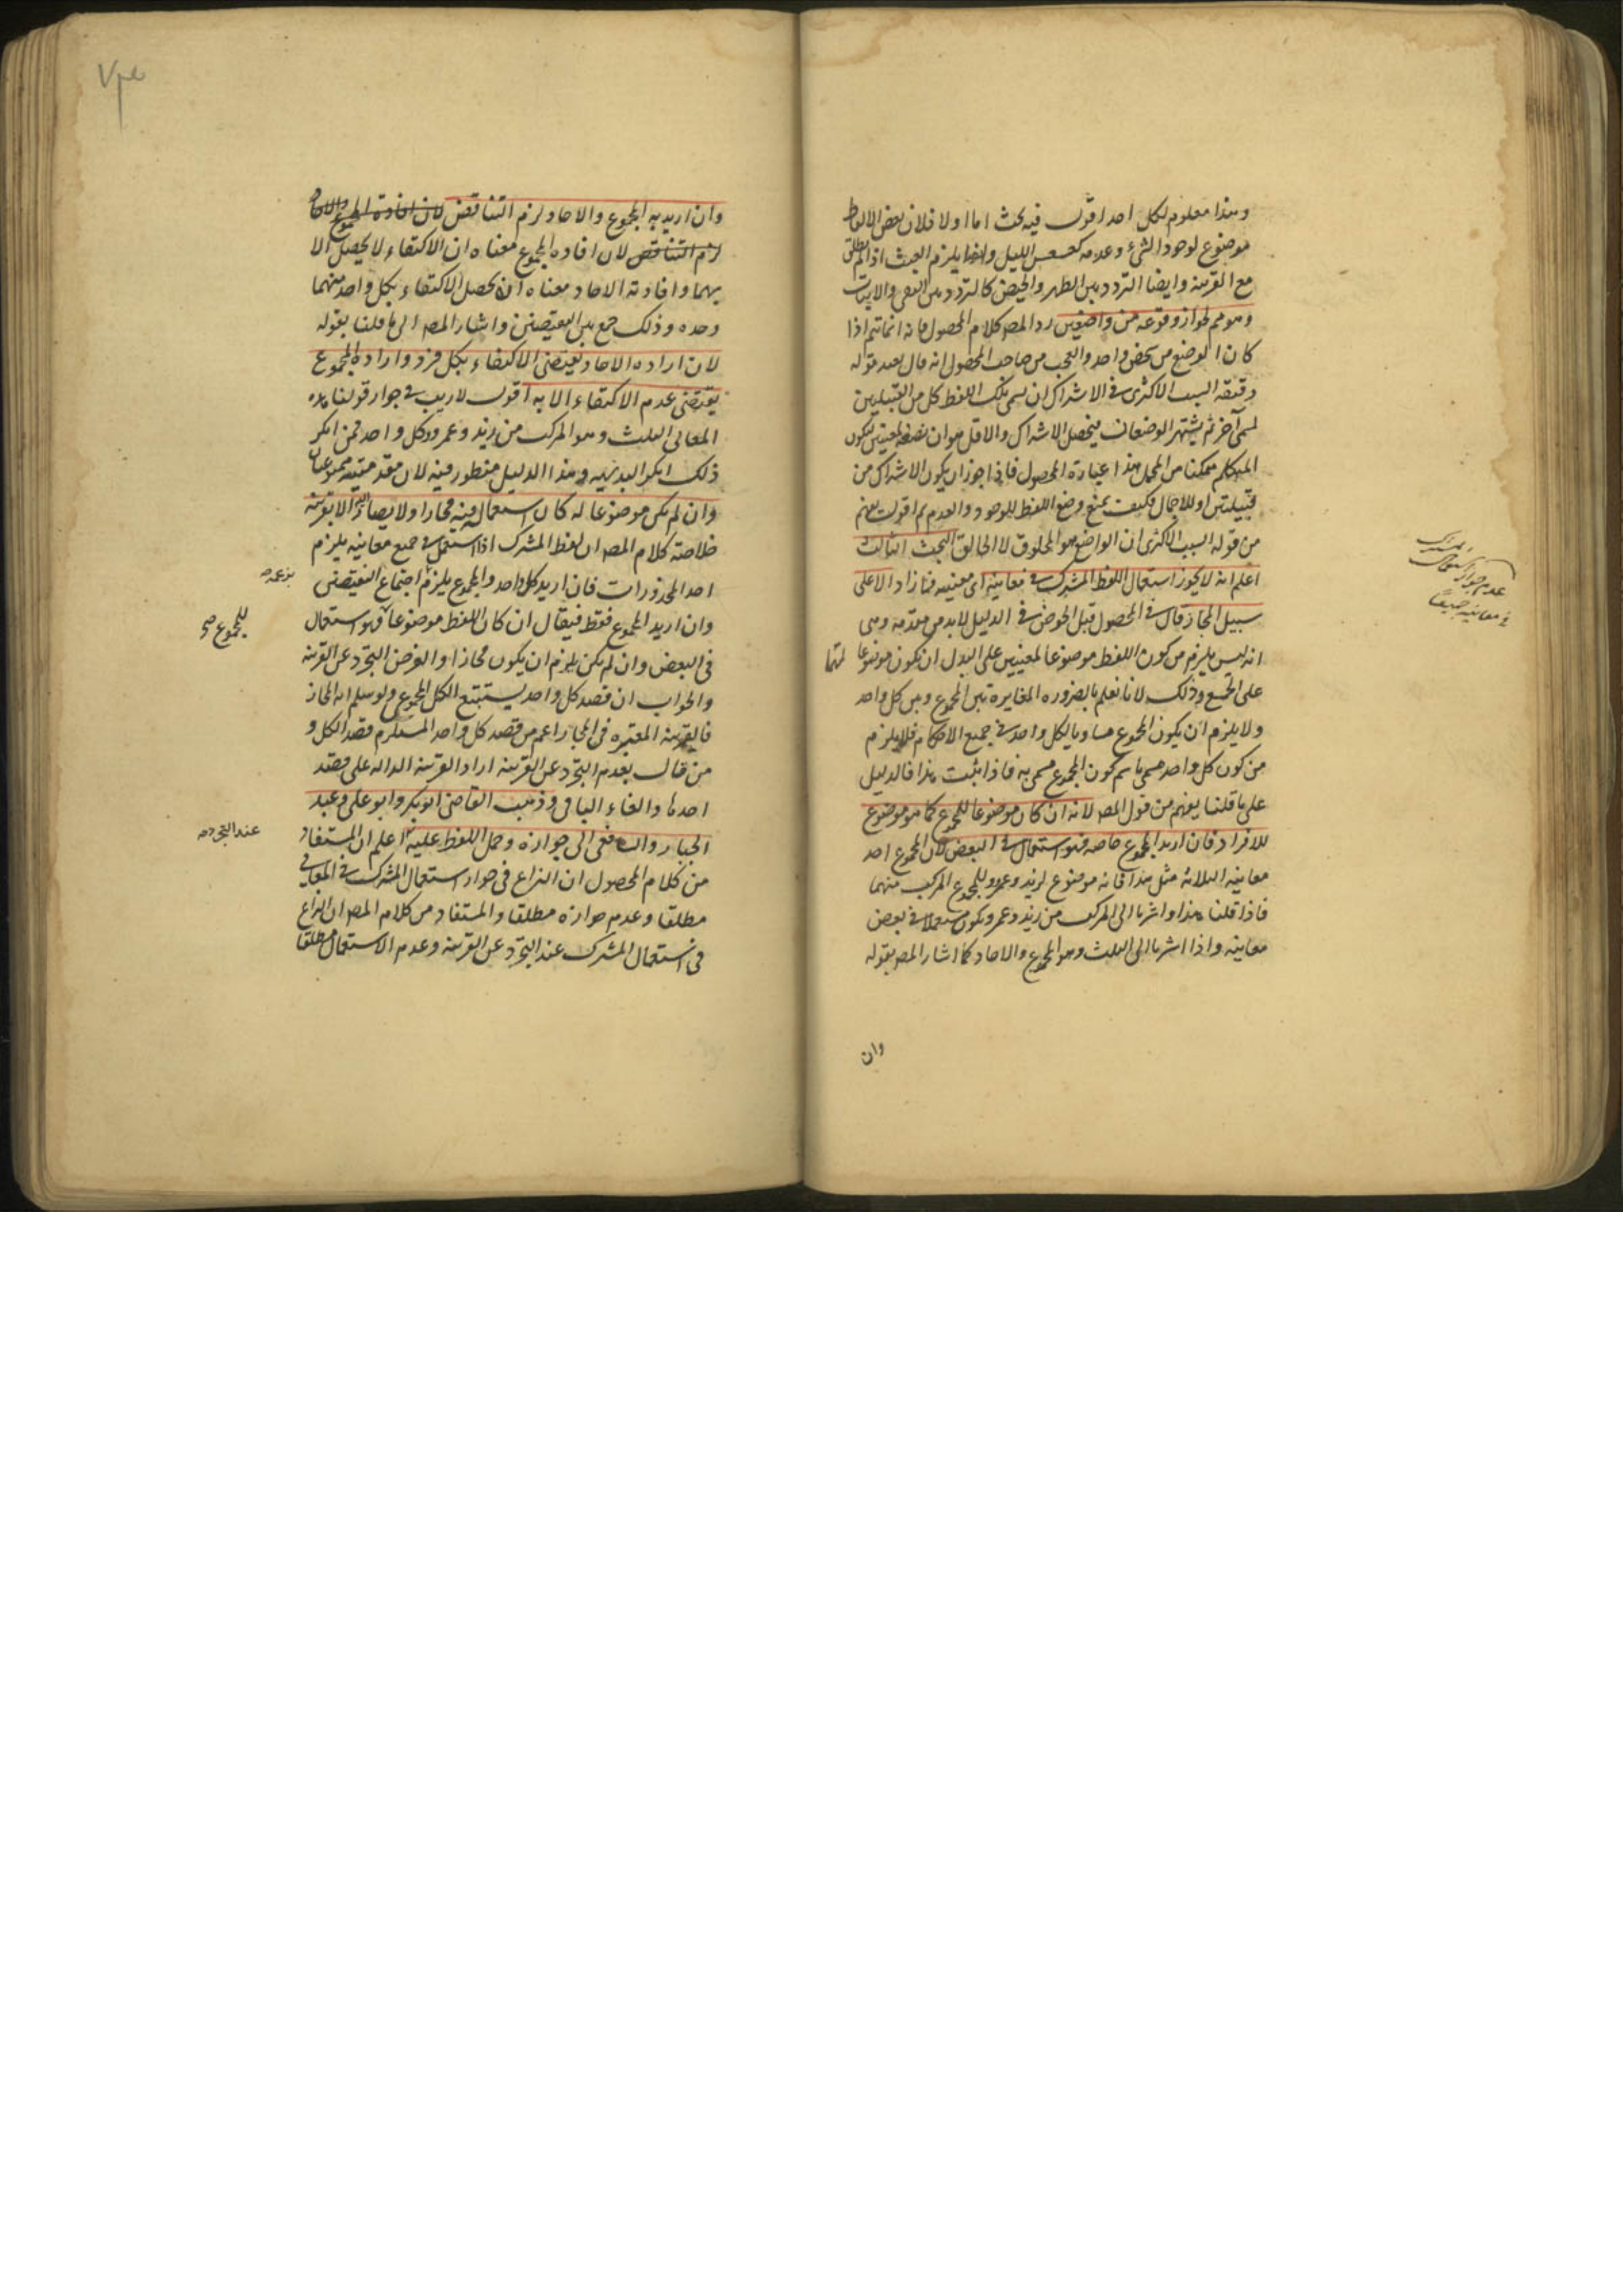 وهذا معلوم لكل احد اقول فيه بحث اما اولا فلان بعض الالفاظ
موضوع لوجود الشيء وعدمه كعسعس الليل وايضا يلزم العبث اذا لم يطلق
مع القرينة وايضا التردد بين الطهر والحيض كالتردد بين النفي والاثبات
وهو مم لجواز وقوعه من واضعين رد المصـ كلام المحصول فانه انما تتم اذا
كان الوضع من شخص واحد والعجب من صاحب المحصول انه قال بعد قوله
السبب الاكثرى في الاشتراك ان تسمى بتلك اللفظ كل من القبيلتين
لمسمى آخر ثم يشتهر الوضعان فيحصل الاشتراك والاقل هو ان يضعه لمعنيين ليكون
المتكلم متمكنا من المجمل هذا عبارة المحصول فاذا جوز ان يكون الاشتراك من
قبيلتين او للاجمال فكيف يمنع وضع اللفظ للوجود والعدم ثم اقول يفهم
من قوله السبب الاكثرى ان الواضع هو المخلوق لا الخالق البحث الثالث
اعلم انه لا يجوز استعمال اللفظ المشترك في معانيه اى معنييه فما زاد الا على
سبيل المجاز قال في المحصول قبل الخوض في الدليل لا بد من مقدمة وهى
انه ليس يلزم من كون اللفظ موضوعا لمعنيين على البدل ان يكون موضوعا لهما
على الجمع وذلك لانا نعلم بالضرورة المغايرة بين المجموع وبين كل واحد
ولا يلزم ان يكون المجموع مساويا لكل واحد في جميع الاحكام فلا يلزم
من كون كل واحد مسمى باسم كون المجموع مسمى به فاذا ثبت هذا فالدليل
على ما قلنا يفهم من قول المصـ لانه ان كان موضوعا للمجموع كما هو موضوع
للافراد فان اريد المجموع خاصة فهو استعمال في البعض لان المجموع احد
معانيه الثلاثة مثل هذا فانه موضوع لزيد وعمرو وللمجموع المركب منهما
فاذا قلنا هذا واشرنا الى المركب من زيد وعمرو يكون مستعملا في بعض
معانيه واذا اشرنا الى الثلث وهو المجموع والاحاد كما اشار المصـ بقوله
وان
عدم جواز استعمال المشترك
في معانيه جميعا
وان اريد به المجموع والاحاد لزم التناقض لان افادة المجموع والاحاد
لزم التناقض لان افاده المجموع معناه ان الاكتفاء لا يحصل الا
بهما وافادته الاحاد معناه ان يحصل الاكتفاء بكل واحد منهما
وحده وذلك جمع بين النقيضين واشار المصـ الى ما قلنا بقوله
لان اراده الاحاد يقتضى الاكتفاء بكل فرد واراده المجموع
يقتضى عدم الاكتفاء الا به اقول لا ريب في جواز قولنا هذه
المعانى الثلث وهو المركب من زيد وعمرو وكل واحد فمن انكر
ذلك انكر البديهيه وهذا الدليل منظور فيه لان مقدمتيه ممنوعتان
وان لم يكن موضوعا له كان استعماله فيه مجازا ولا يصار اليه الا بقرينة
خلاصة كلام المصـ ان لفظ المشترك اذا استعمل في جميع معانيه يلزم
احد المحذورات فان اريد كل واحد والمجموع يلزم اجتماع النقيضين
بزعمه
وان اريد المجموع فقط فيقال ان كان اللفظ موضوعا فهو استعمال
للمجموع صح
في البعض وان لم يكن يلزم ان يكون مجازا والغرض التجرد عن القرينة
والجواب ان قصد كل واحد يستتبع الكل المجموعى ولو سلم انه المجاز
فالقرينة المعتبره في المجاز اعم من قصد كل واحد المستلزم قصد الكل و
من قال بعدم التجرد عن القرينة اراد القرينة الداله على قصد
احدها والغاء الباقى وذهب القاضى ابو بكر وابو على وعبد
الجبار والشافعى الى جوازه وحمل اللفظ عليه اعلم ان المستفاد
عند التجرد
من كلام المحصول ان النزاع في جواز استعمال المشترك في المعانى
مطلقا وعدم جوازه مطلقا والمستفاد من كلام المصـ ان النزاع
في استعمال المشترك عند التجرد عن القرينة وعدم الاستعمال مطلقا